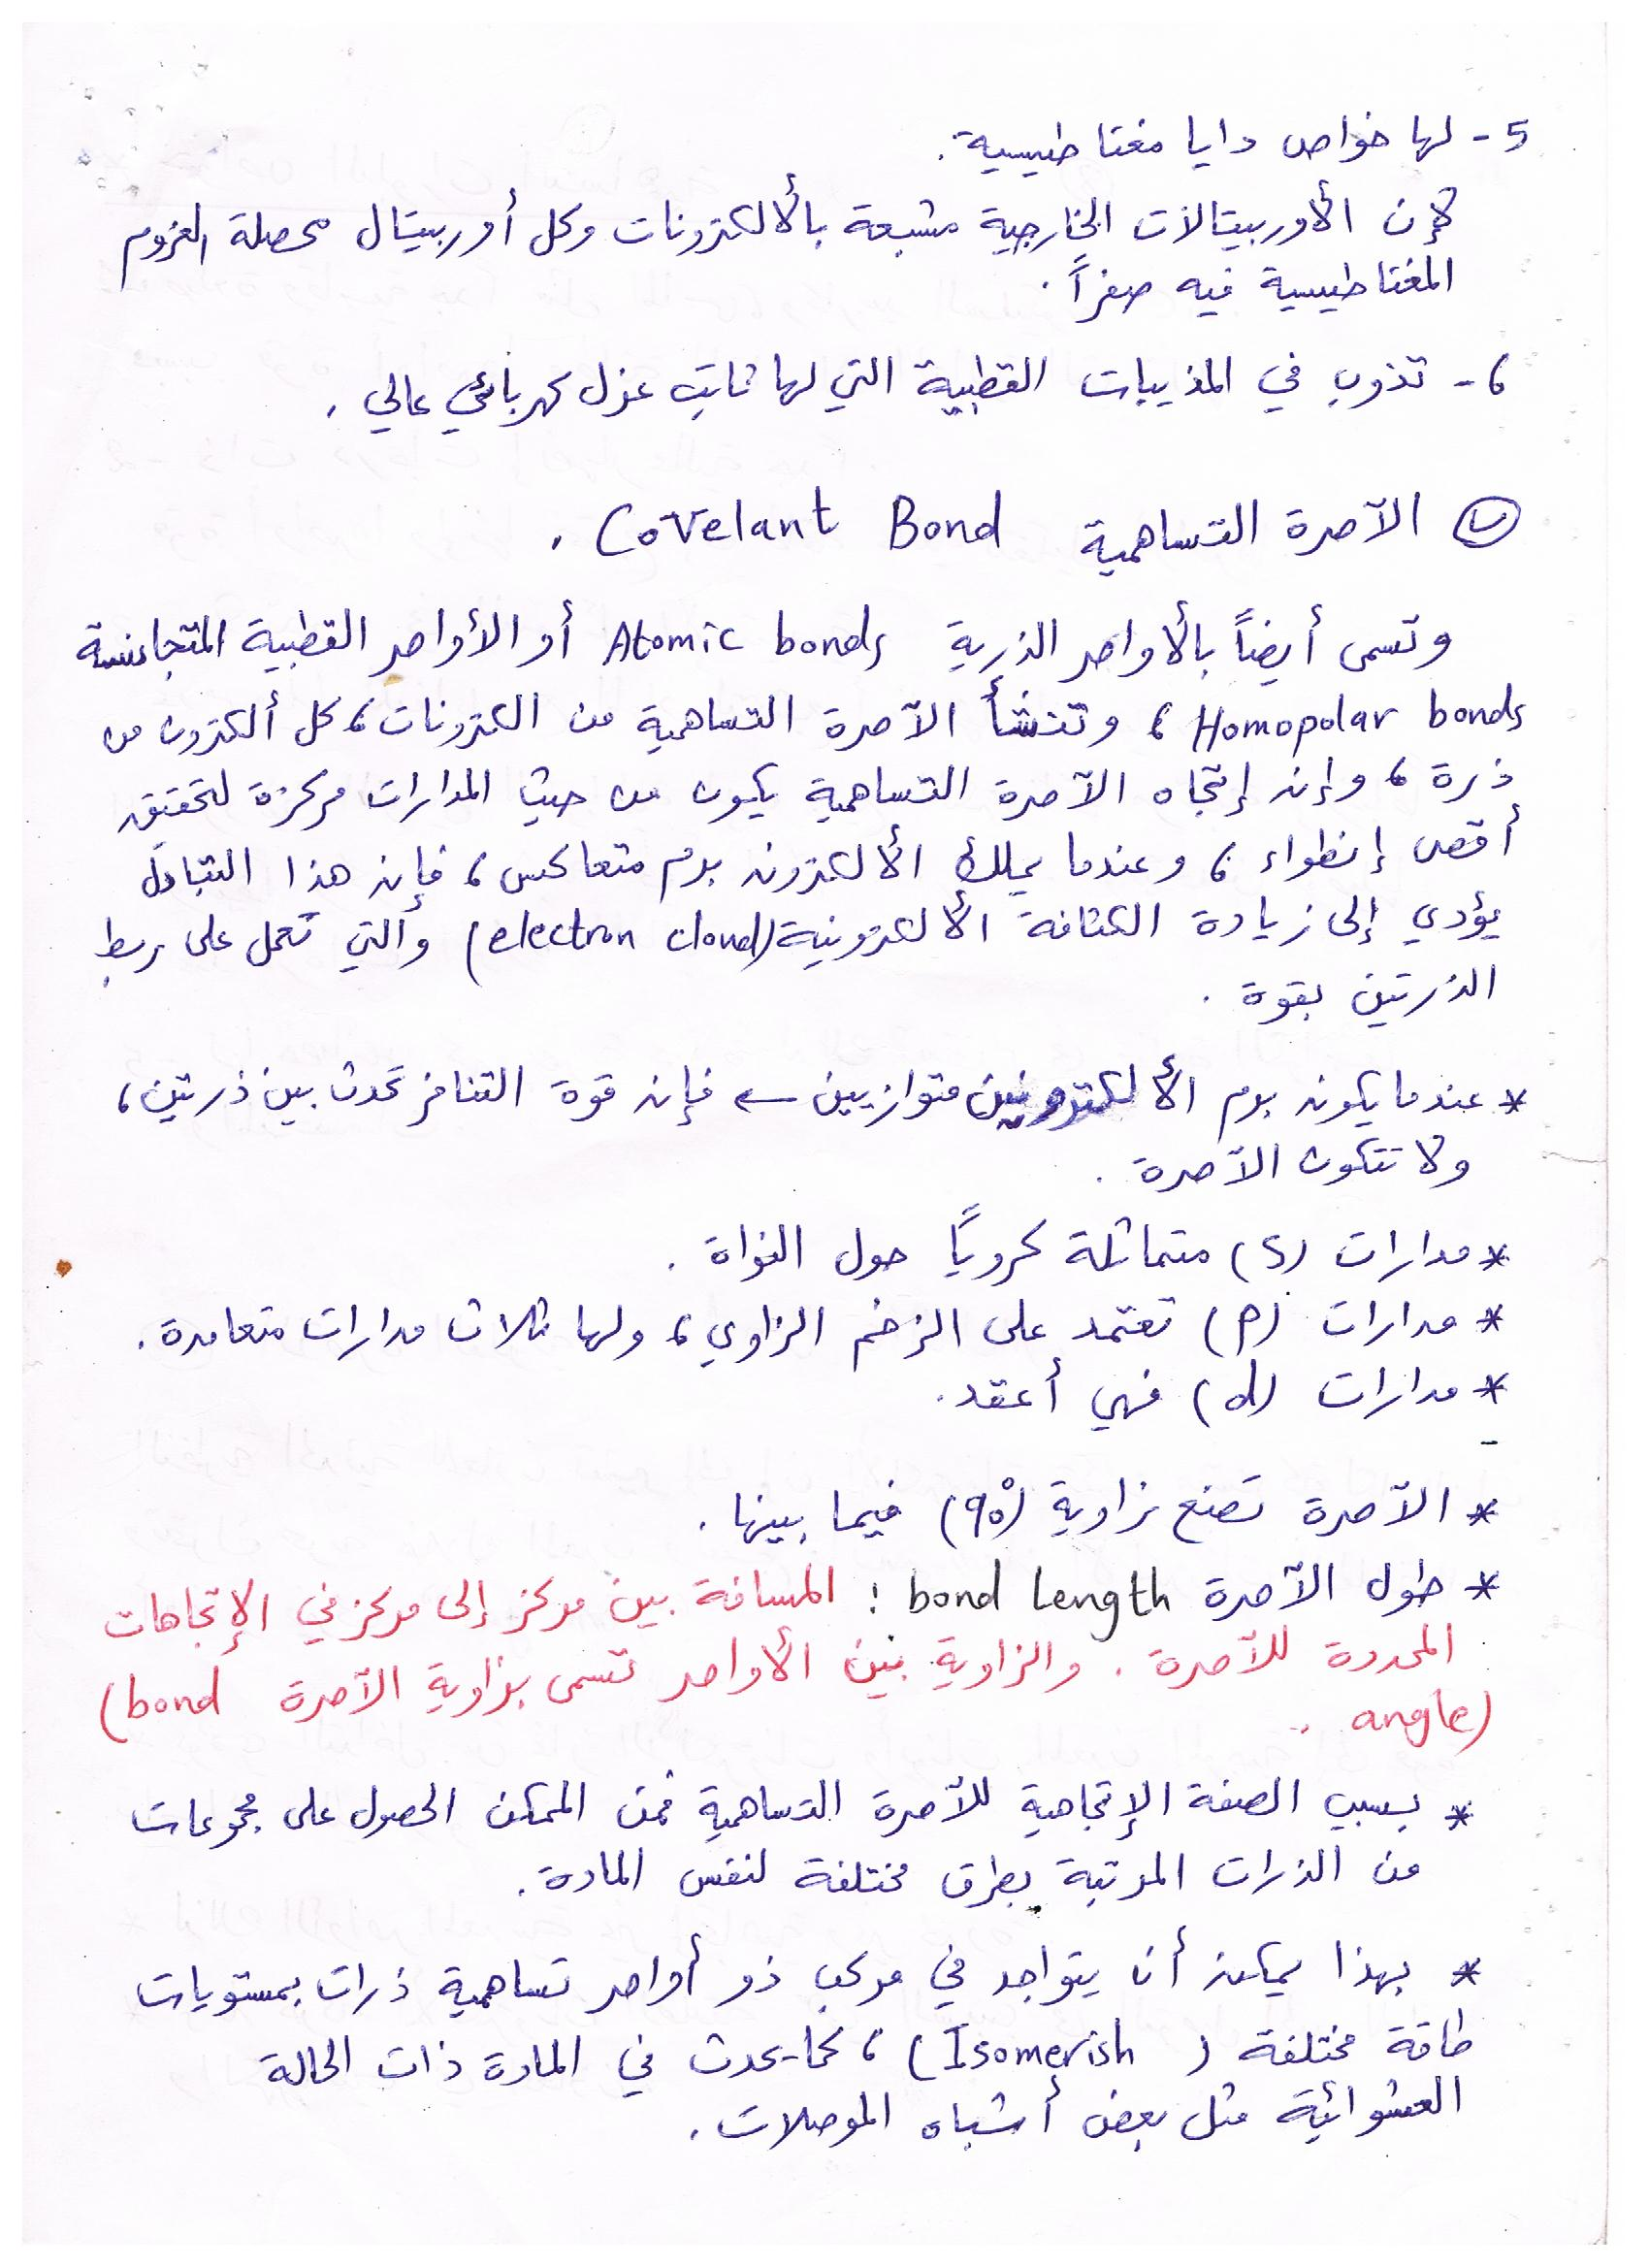 5- لها خواص دايا مغناطيسية.
لإن الأوربيتالات الخارجية مشبعة بالألكترونات وكل أوربيتال محصلة العزوم
المغناطيسية فيه صفراً.
6- تذوب في المذيبات القطبية التي لها ثابت عزل كهربائي عالي.
ب الآصرة التساهمية Covelant Bond.
وتسمى أيضاً بالأواصر الذرية Atomic bonds أو الأواصر القطبية المتجانسة
Homopolar bonds، وتنشأ الآصرة التساهمية من الكترونات، كل ألكترون من
ذرة، وإن إتجاه الآصرة التساهمية يكون من حيث المدارات مركزة لتحقيق
أقصى إنطواء، وعندما يملك الألكترون برم متعاكس، فإن هذا التبادل
يؤدي إلى زيادة الكثافة الألكترونية (electron cloud) والتي تعمل على ربط
الذرتين بقوة.
* عندما يكون برم الألكترونين متوازيين ← فإن قوة التنافر تحدث بين ذرتين،
ولا تتكون الآصرة.
* مدارات (S) متماثلة كروياً حول النواة.
* مدارات (P) تعتمد على الزخم الزاوي، ولها ثلاث مدارات متعامدة.
* مدارات (d) فهي أعقد.
-
* الآصرة تصنع زاوية (90°) فيما بينها.
* طول الآصرة bond length: المسافة بين مركز إلى مركز في الإتجاهات
المحددة للآصرة. والزاوية بين الأواصر تسمى بزاوية الآصرة (bond
angle).
* بسبب الصفة الإتجاهية للآصرة التساهمية فمن الممكن الحصول على مجموعات
من الذرات المرتبة بطرق مختلفة لنفس المادة.
* بهذا يمكن أن يتواجد في مركب ذو أواصر تساهمية ذرات بمستويات
طاقة مختلفة (Isomerish)، كما يحدث في المادة ذات الحالة
العشوائية مثل بعض أشباه الموصلات.